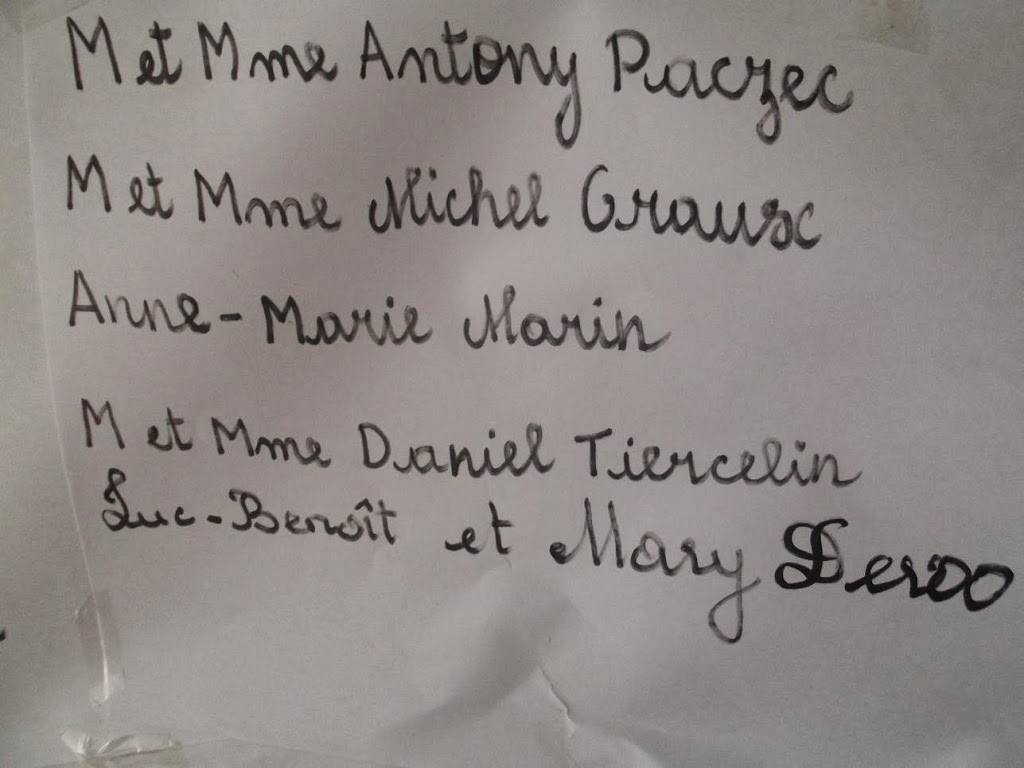 M et Mme Antony Raczec
M et Mme Michel Graux
Anne-Marie Marin
M et Mme Daniel Tiercelin
Luc-Benoît et Mary Deroo